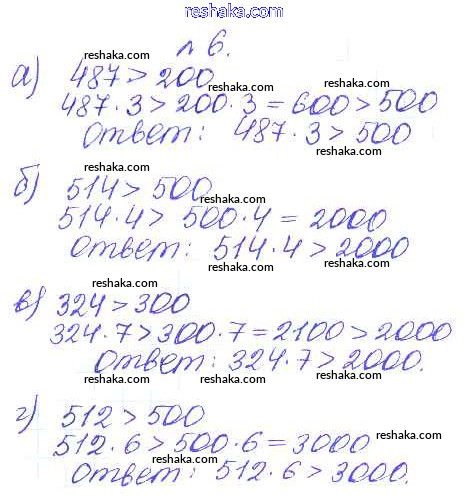 reshaka.com
№ 6.
reshaka.com
а) 487 > 200
reshaka.com
487 · 3 > 200 · 3 = 600 > 500
reshaka.com
Ответ: 487 · 3 > 500
reshaka.com
reshaka.com
б) 514 > 500
reshaka.com
514 · 4 > 500 · 4 = 2000
reshaka.com
Ответ: 514 · 4 > 2000
reshaka.com
reshaka.com
в) 324 > 300
324 · 7 > 300 · 7 = 2100 > 2000
reshaka.com
Ответ: 324 · 7 > 2000.
reshaka.com
reshaka.com
г) 512 > 500
reshaka.com
512 · 6 > 500 · 6 = 3000
reshaka.com
Ответ: 512 · 6 > 3000.
reshaka.com
reshaka.com